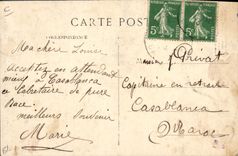 CARTE POST
CORRESPONDANCE
Ma chère Louise
Acceptez en attendant
mieux à Casablanca
ce Labrador de pure
Race.
meilleurs Souvenir
Marie
5c 5c
Privat
Capitaine en retraite
Casablanca
Maroc